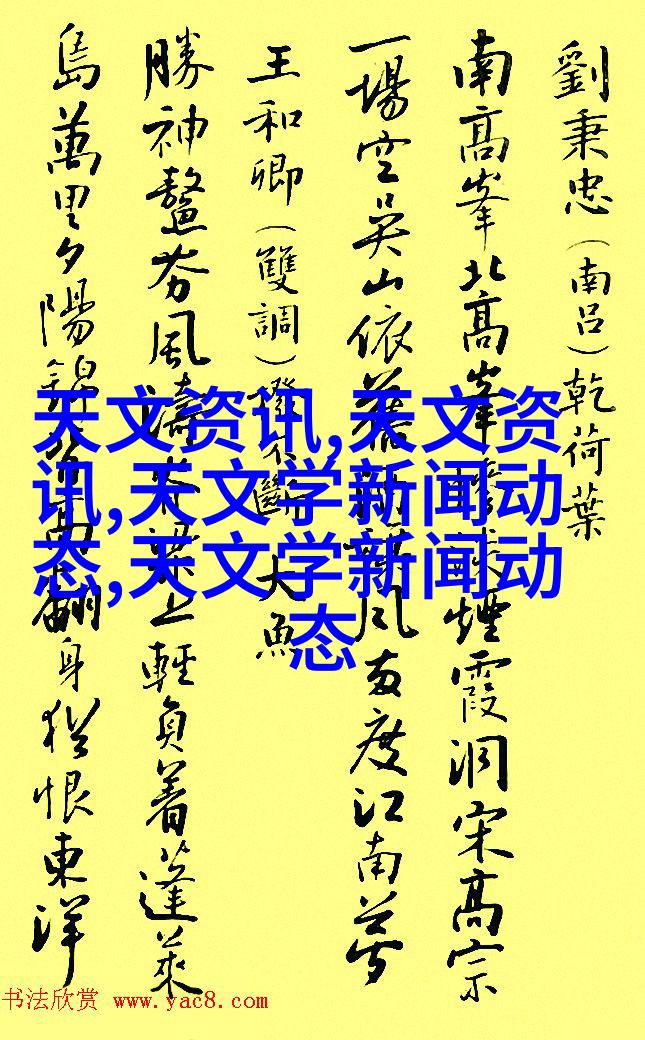 劉秉忠(南呂)乾荷葉
南高峯北高峯煙霞洞宋高宗
一場空吳山依舊旗風兩度江南夢
王和卿(雙調)撥不斷 大魚
勝神鼇夯風濤脊梁上輕負着蓬萊
島萬里夕陽錦背高翻身猶恨東洋
天文资讯,天文资
讯,天文学新闻动
态,天文学新闻动
态
书法欣赏 www.yac8.com